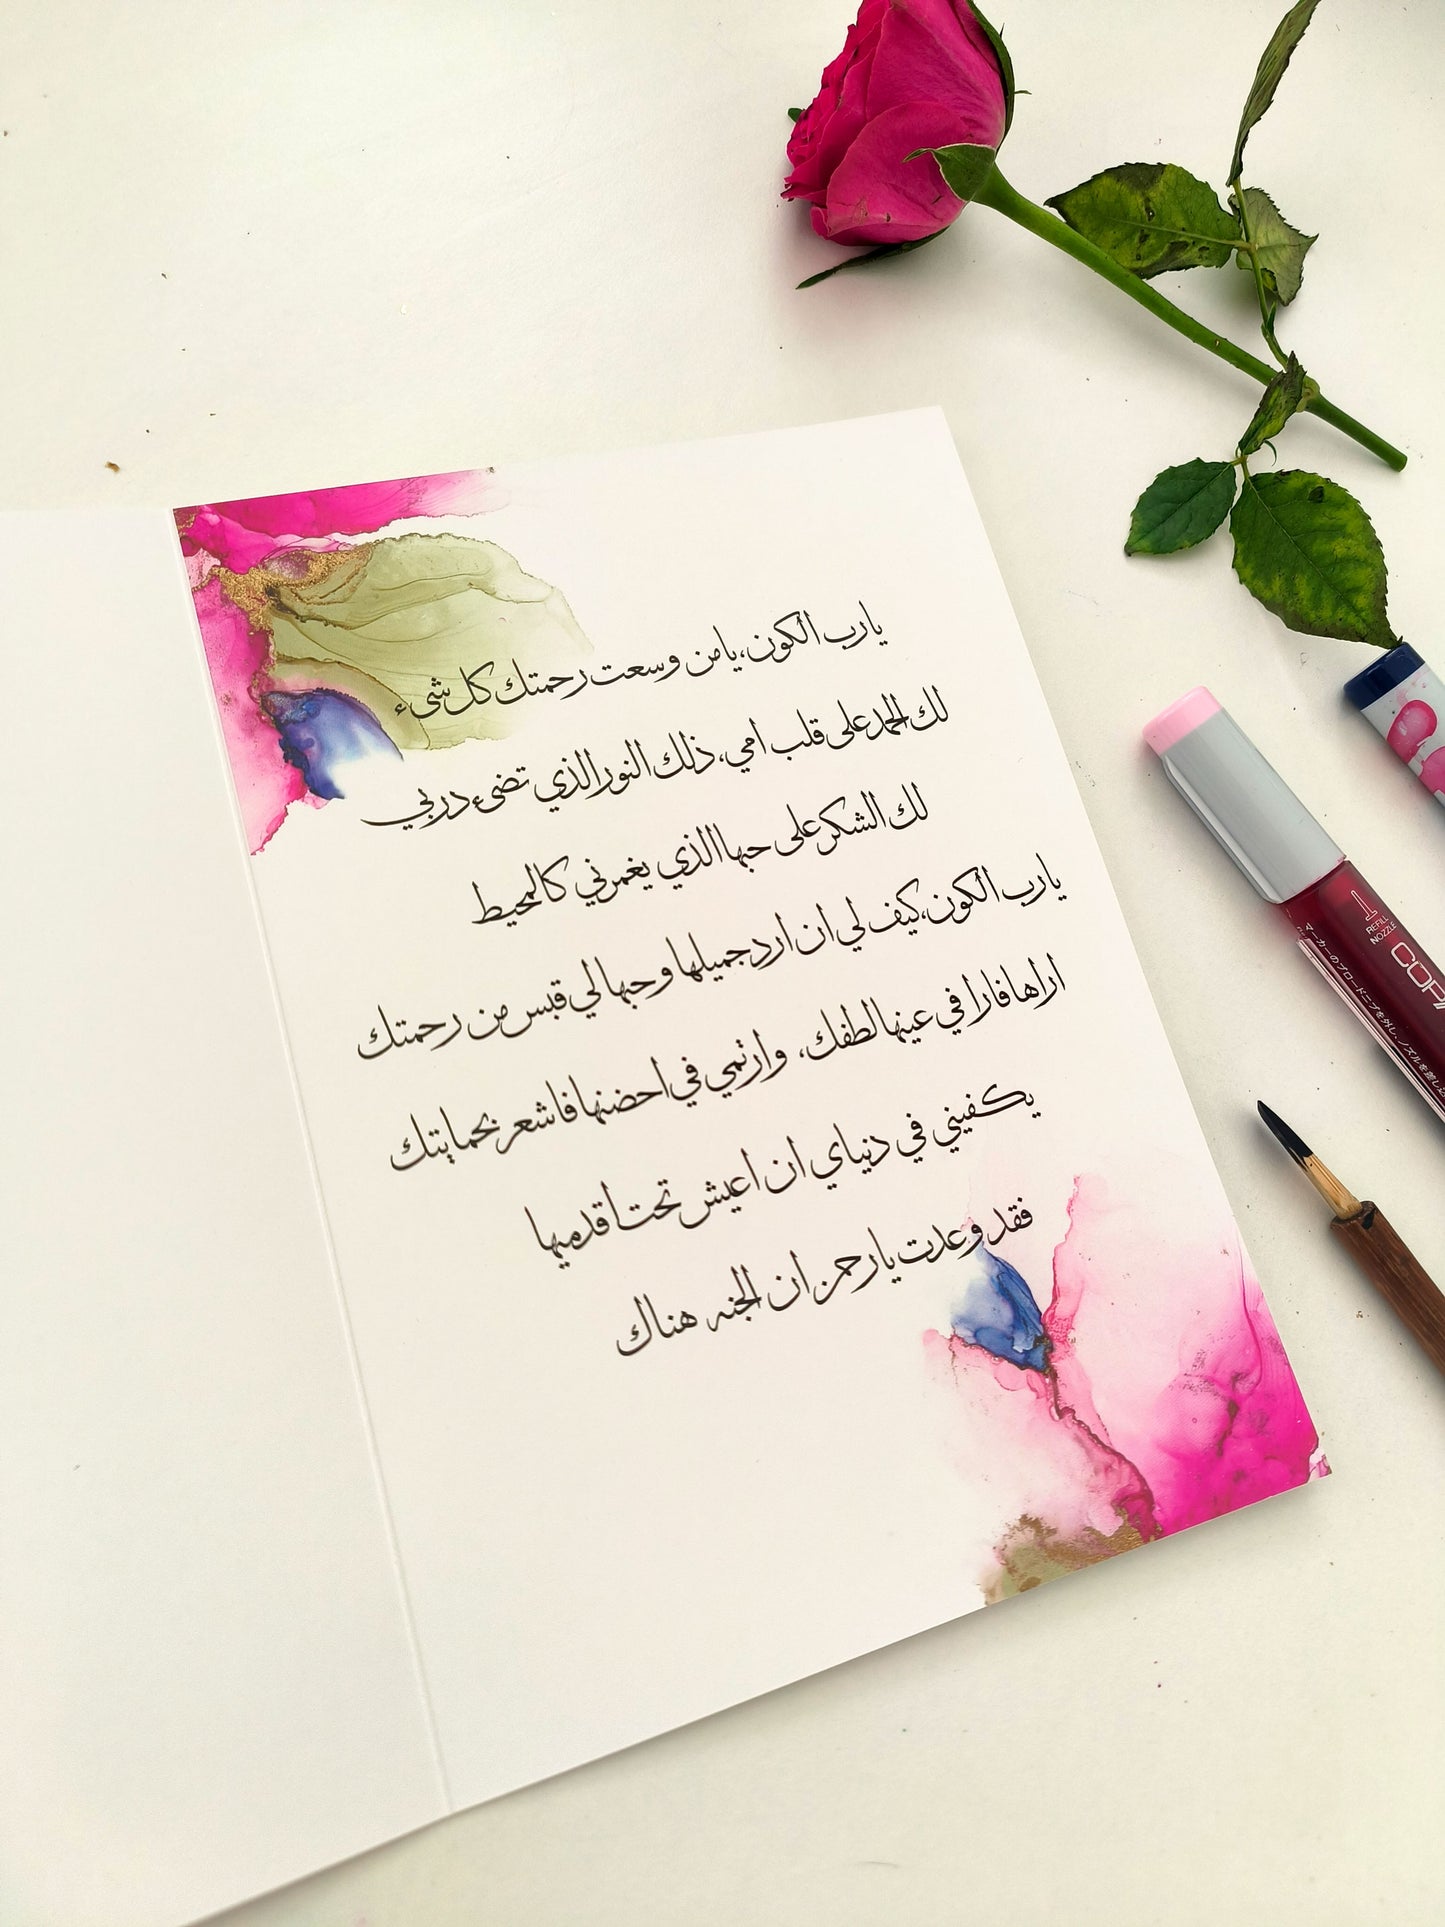 يارب الكون،يامن وسعت رحمتك كل شيء
لك الحمد على قلب امي، ذلك النور الذي تضيء دربي
لك الشكر على حبها الذي يغمرني كالمحيط
يارب الكون،كيف لي ان ارد جميلها وحبها لي قبس من رحمتك
اراها فارا في عينها لطفك، وارتمي في احضنها فاشعر بحمايتك
يكفيني في دنياي ان اعيش تحت اقدميها
فقد وعدت يارحمن ان الجنه هناك
1
REFILL
NOZZLE